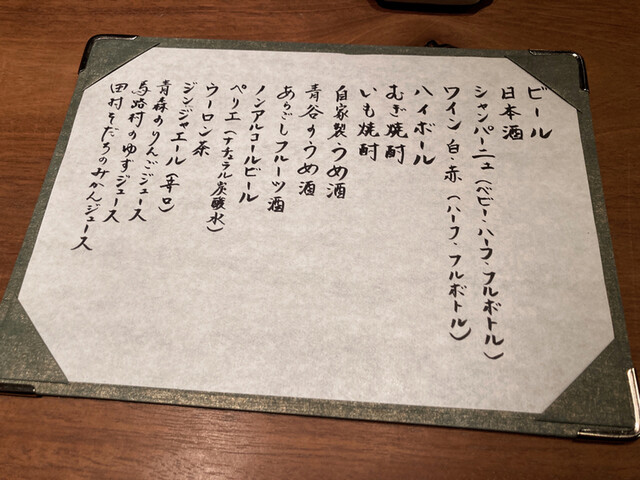 ビール
日本酒
シャンパーニュ（ベビー・ハーフ・フルボトル）
ワイン 白・赤（ハーフ・フルボトル）
ハイボール
むぎ焼酎
いも焼酎
自家製うめ酒
青谷のうめ酒
あらごしフルーツ酒
ノンアルコールビール
ペリエ（ナチュラル炭酸水）
ウーロン茶
ジンジャエール（辛口）
青森のりんごジュース
馬路村のゆずジュース
田村そだちのみかんジュース